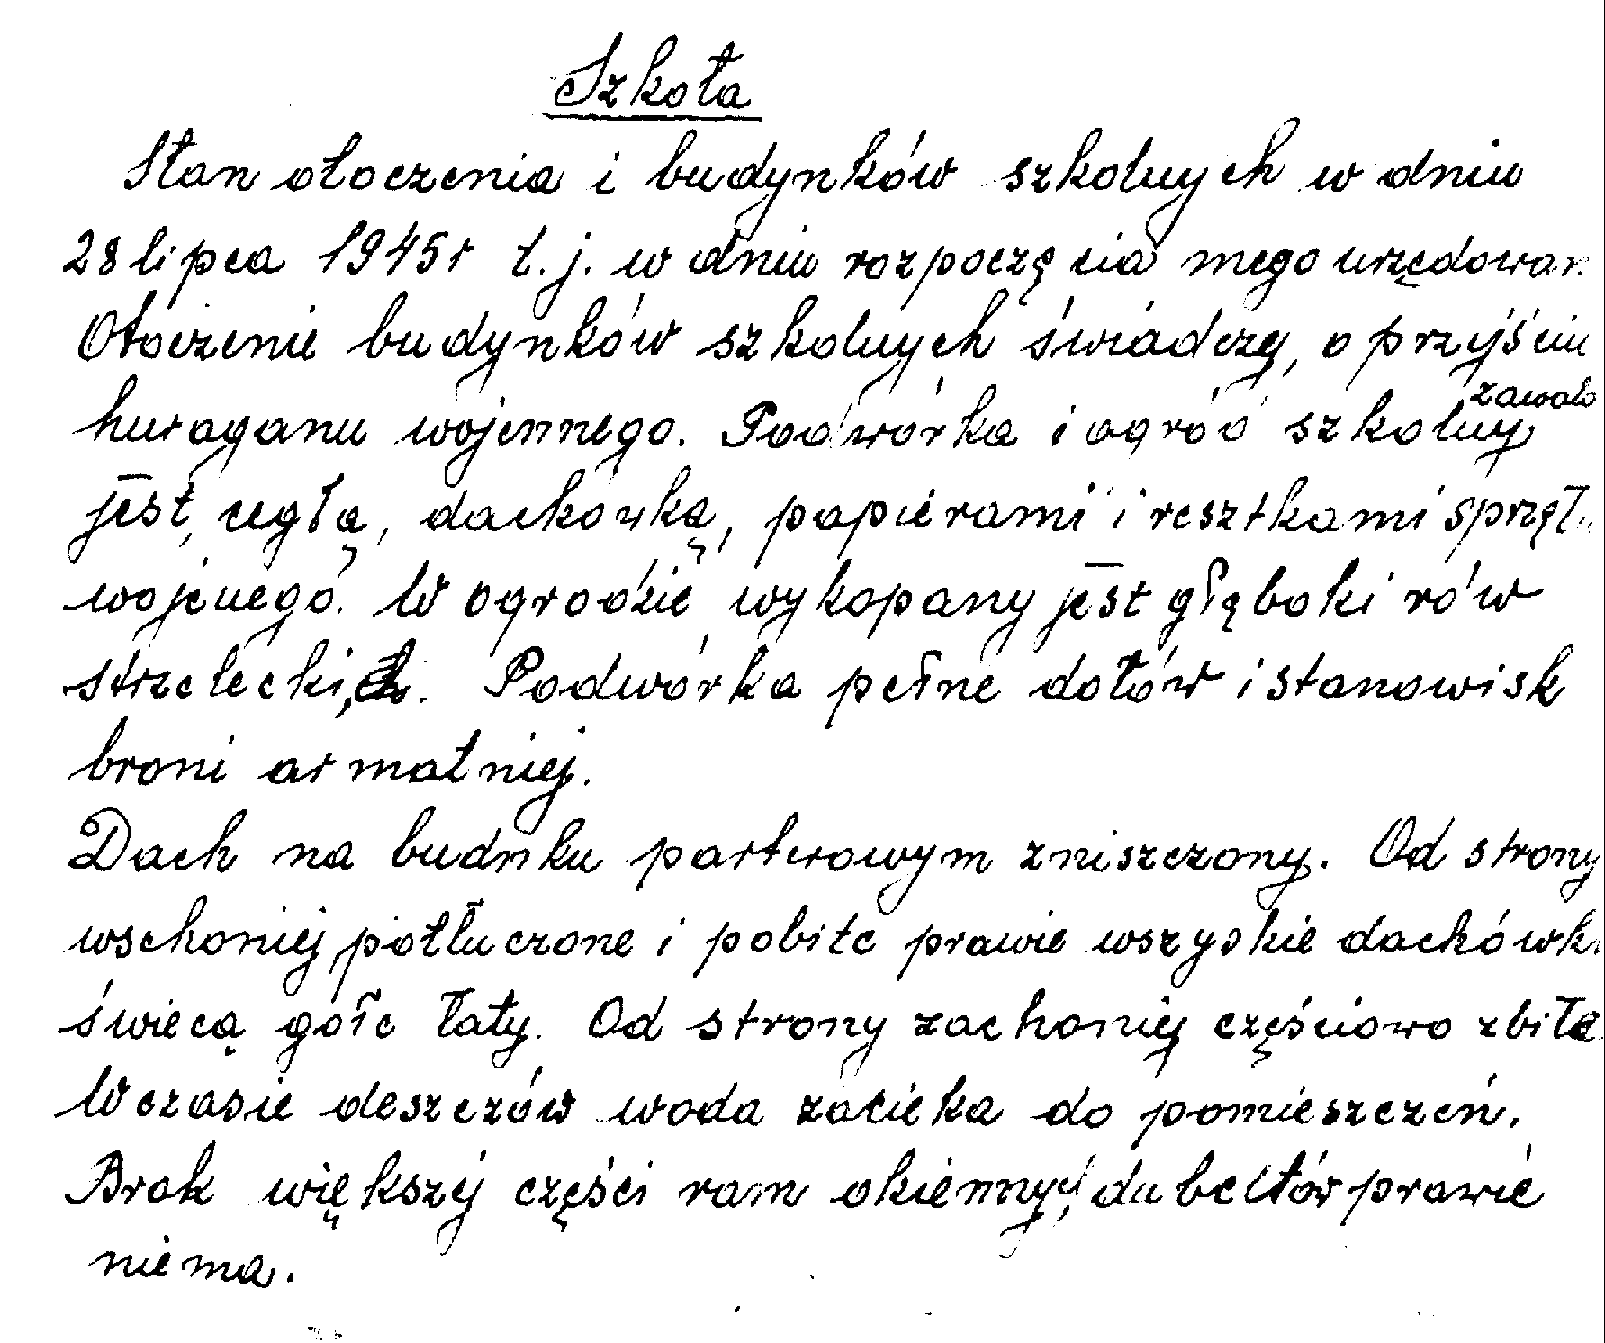 Szkoła
Stan otoczenia i budynków szkolnych w dniu
28 lipca 1945r t.j. w dniu rozpoczęcia mego urzędowan
Otoczenie budynków szkolnych świadczę, o przyjściu
huraganu wojennego. Podwórka i ogród szkolny zawalo
jest, cegłą, dachówką, papierami i resztkami sprzęt
wojenego. W ogrodzie wykopany jest głęboki rów
strzelecki. Podwórka pełne dołów i stanowisk
broni armatniej.
Dach na budnku parterowym zniszczony. Od strony
wschoniej potłuczone i pobite prawie wszyskie dachówki
świecą gołe łaty. Od strony zachoniej częściowo zbite
W czasie deszczów woda zacieka do pomieszczeń.
Brak większej części ram okiennych, dubeltów prawie
niema.